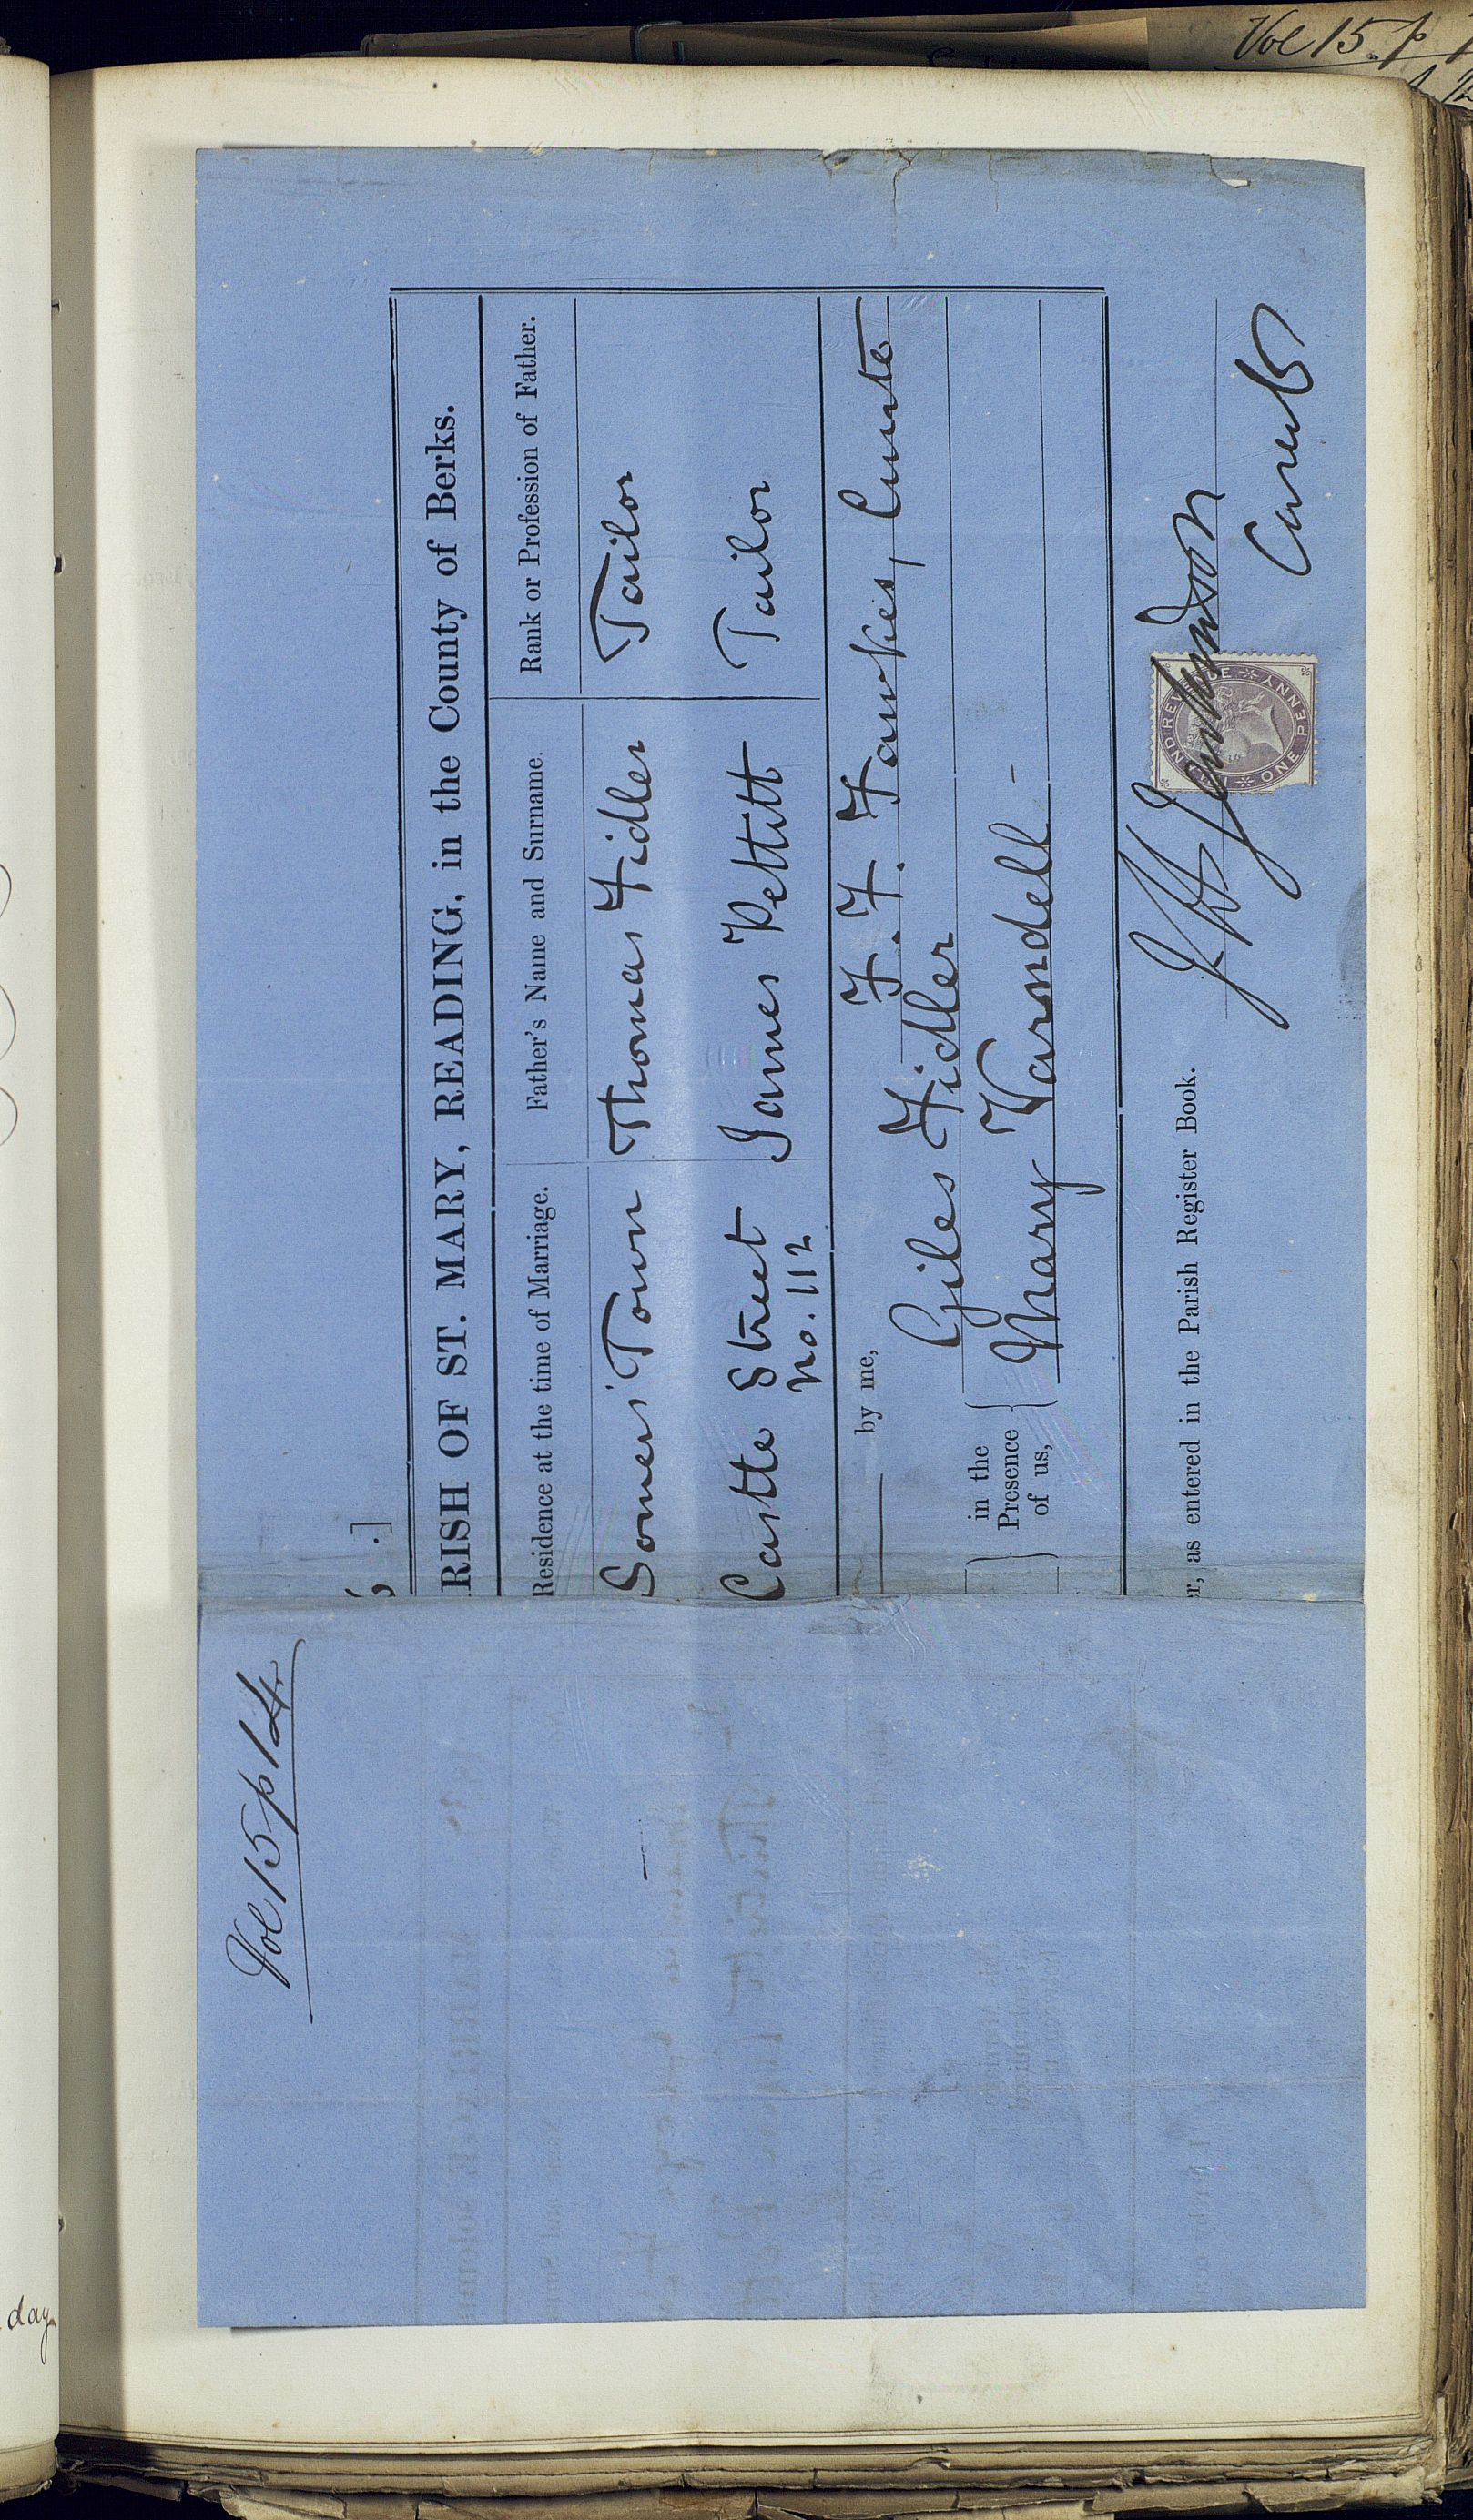 Vol 15 p
Vol 15 p 14
.]
RISH OF ST. MARY, READING, in the County of Berks.
Residence at the time of Marriage. Father's Name and Surname. Rank or Profession of Father.
Somers Town Thomas Fidler Tailor
Castle Street James Pettitt Tailor
No. 112
by me, F. F. Fawkes, Curate
in the
Presence
of us,
Giles Fidler
Mary Varndell
r, as entered in the Parish Register Book.
Curate
ONE PENNY
day